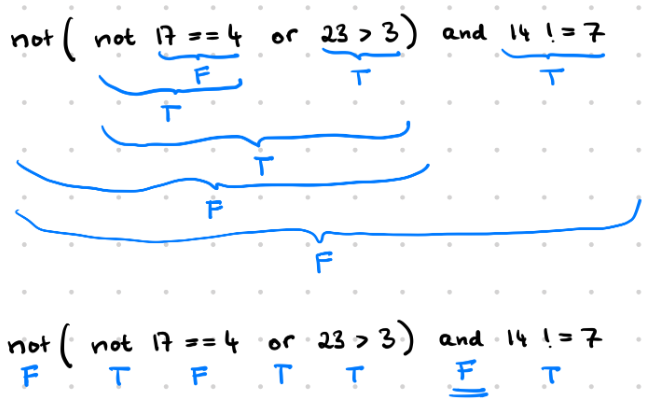 not ( not 17 == 4 or 23 > 3 ) and 14 != 7
F T T
T
T
F
F
not ( not 17 == 4 or 23 > 3 ) and 14 != 7
F T F T T F T